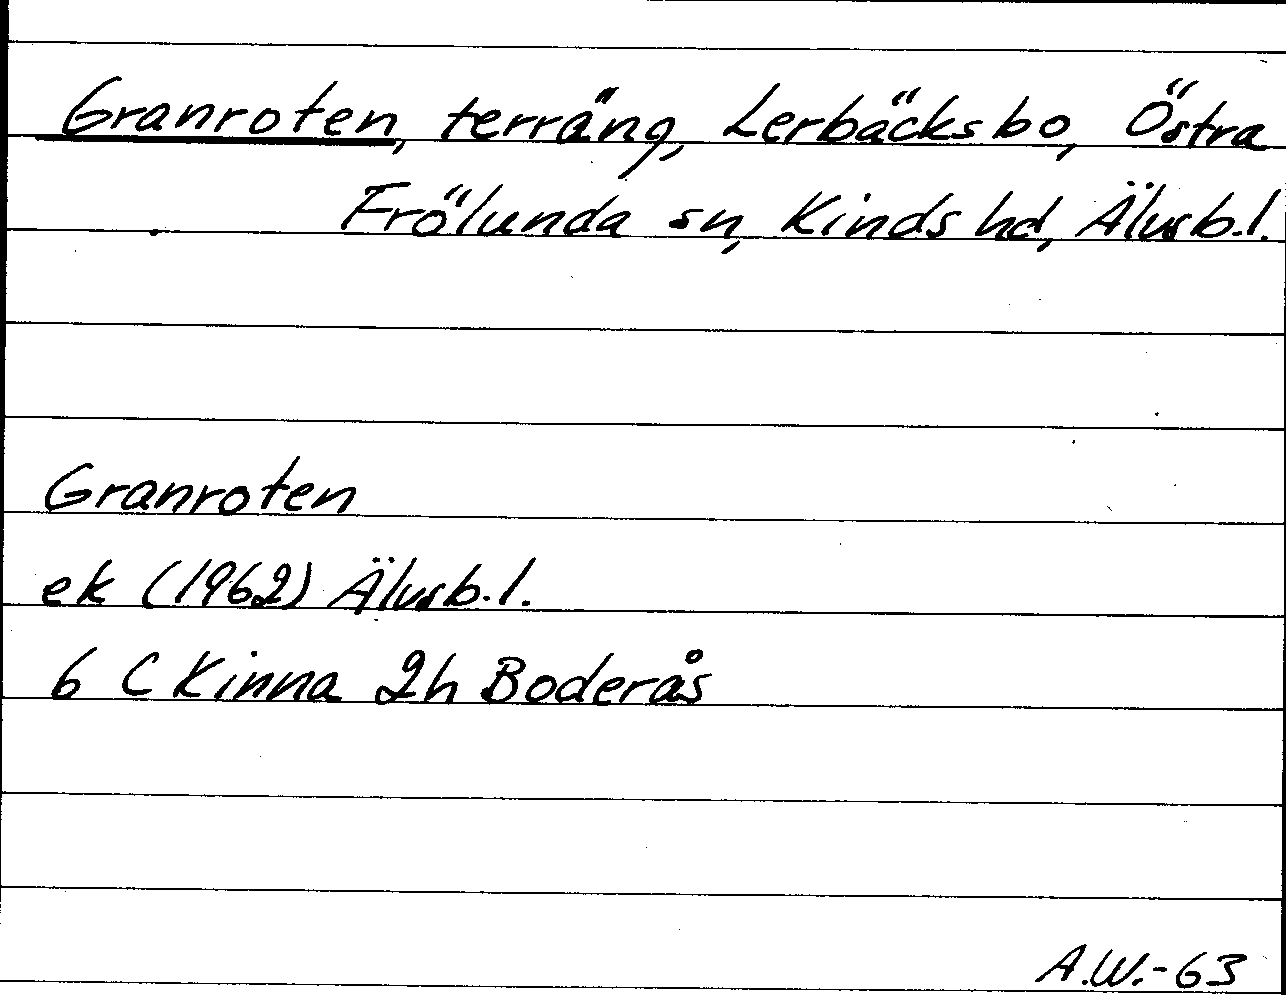 Granroten, terräng, Lerbäcksbo, Östra
Frölunda sn, Kinds hd, Älvsb.l.
Granroten
ek (1962) Älvsb.l.
6 C Kinna 2h Boderås
A.W.-63